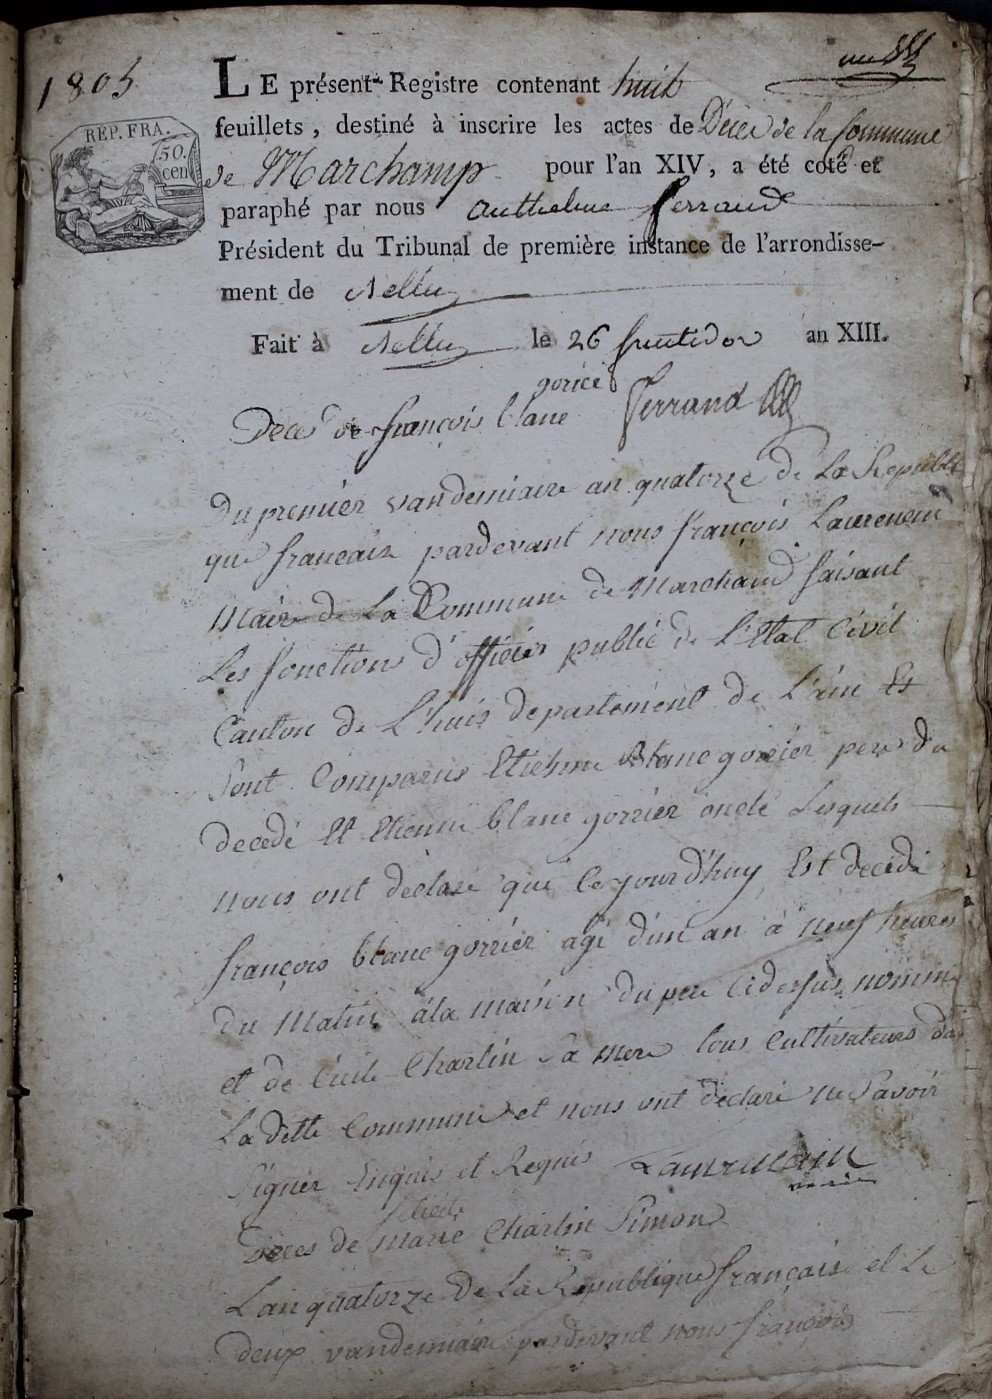 1805
LE présent Registre contenant huit
feuillets, destiné à inscrire les actes de Décès de la Commune
de Marchamp pour l'an XIV, a été coté et
paraphé par nous Anthelme ferrand
Président du Tribunal de première instance de l'arrondisse-
ment de Belley
Fait à Belley le 26 fructidor an XIII.
REP. FRA.
50.
cen
gorrié
Deces de françois blanc ferrand
Du premier vandemiaire an quatorze de La Republi
que francaiz pardevant nous françois Laurencin
Maire de La Commune de Marchand faisant
Les fonctions d'officiér public de L'Etat Civil
Canton de L'huis departement de L'ain Et
Sont Comparus Etienne blanc gorriér pere du
decedé Et Etienne blanc gorriér oncle Lesquels
nous ont déclaré que Ce jourd'huy Est decedé
françois blanc gorriér agé d'un an à neuf heures
du Matin à la maison du pere Cidessus nommé
et de Cécile Charlin Sa mere tous Cultivateurs de
La ditte Commune et nous ont déclaré ne Savoir
Signer Enquis et Requis Laurencin
maire
Deces de Marie Charlin Simond
L'an quatorze de La Republique française et Le
deux vandemiaire pardevant nous françois